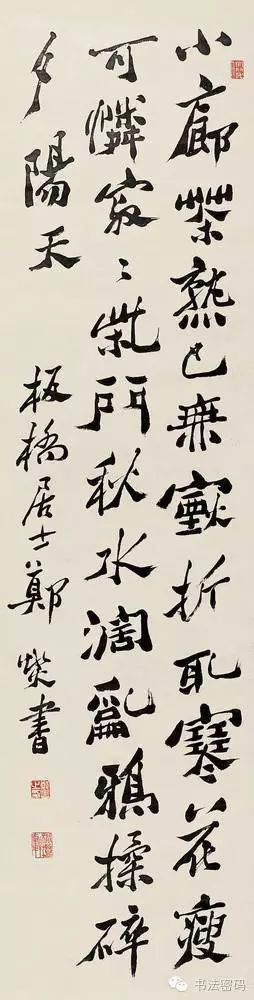 小廊茶熟已無煙折取寒花瘦
可憐寂〻柴門秋水闊亂鴉揉碎
夕陽天
板橋居士鄭燮書
书法密码